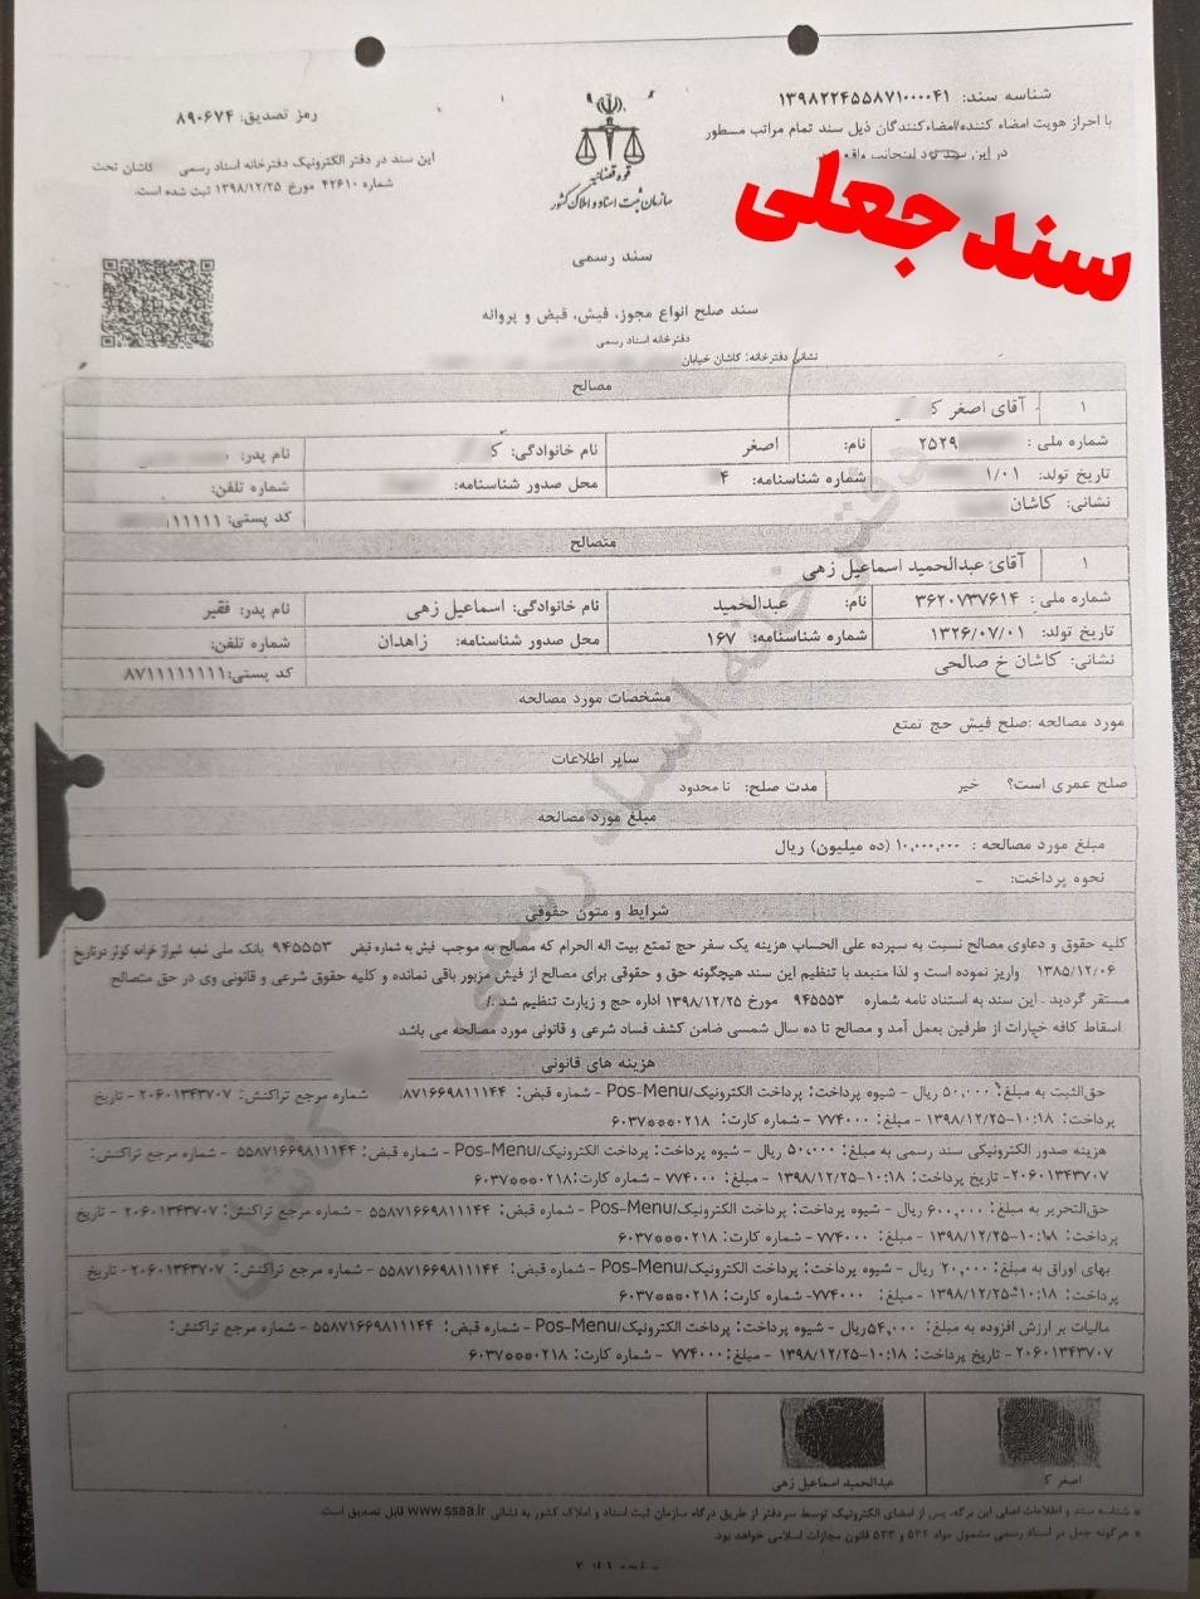 شناسه سند: ۱۳۹۸۲۲۴۵۵۸۷۱۰۰۰۰۴۱
با احراز هویت امضاء کننده/امضاءکنندگان ذیل سند تمام مراتب مسطور
در این سند نزد اینجانب واقع
سند جعلی
قوه قضائیه
سازمان ثبت اسناد و املاک کشور
رمز تصدیق: ۸۹۰۶۷۴
این سند در دفتر الکترونیک دفترخانه اسناد رسمی کاشان تحت
شماره ۴۲۶۱۰ مورخ ۱۳۹۸/۱۲/۲۵ ثبت شده است.
سند رسمی
سند صلح انواع مجوز، فیش، قبض و پروانه
دفترخانه اسناد رسمی
نشانی دفترخانه: کاشان خیابان
مصالح
۱ آقای اصغر ک
شماره ملی : ۲۵۲۹ نام: اصغر نام خانوادگی: ک نام پدر:
تاریخ تولد: ۱/۰۱ شماره شناسنامه: ۴ محل صدور شناسنامه: شماره تلفن:
نشانی: کاشان کد پستی: ۱۱۱۱۱
متصالح
۱ آقای عبدالحمید اسماعیل زهی
شماره ملی : ۳۶۲۰۷۳۷۶۱۴ نام: عبدالحمید نام خانوادگی: اسماعیل زهی نام پدر: فقیر
تاریخ تولد: ۱۳۲۶/۰۷/۰۱ شماره شناسنامه: ۱۶۷ محل صدور شناسنامه: زاهدان شماره تلفن:
نشانی: کاشان خ صالحی کد پستی: ۸۷۱۱۱۱۱۱۱۱
مشخصات مورد مصالحه
مورد مصالحه :صلح فیش حج تمتع
سایر اطلاعات
صلح عمری است؟ خیر مدت صلح: نامحدود
مبلغ مورد مصالحه
مبلغ مورد مصالحه : ۱۰,۰۰۰,۰۰۰ (ده میلیون) ریال
نحوه پرداخت: -
شرایط و متون حقوقی
کلیه حقوق و دعاوی مصالح نسبت به سپرده علی الحساب هزینه یک سفر حج تمتع بیت اله الحرام که مصالح به موجب فیش به شماره قبض ۹۴۵۵۵۳ بانک ملی شعبه شیراز خزانه کوثر درتاریخ
۱۳۸۵/۱۲/۰۶ واریز نموده است و لذا منبعد با تنظیم این سند هیچگونه حق و حقوقی برای مصالح از فیش مزبور باقی نمانده و کلیه حقوق شرعی و قانونی وی در حق متصالح
مستقر گردید . این سند به استناد نامه شماره ۹۴۵۵۵۳ مورخ ۱۳۹۸/۱۲/۲۵ اداره حج و زیارت تنظیم شد ./
اسقاط کافه خیارات از طرفین بعمل آمد و مصالح تا ده سال شمسی ضامن کشف فساد شرعی و قانونی مورد مصالحه می باشد
هزینه های قانونی
حق‌الثبت به مبلغ: ۵۰,۰۰۰ ریال - شیوه پرداخت: پرداخت الکترونیک/Pos-Menu - شماره قبض: ۸۷۱۶۶۹۸۱۱۱۴۴ شماره مرجع تراکنش: ۲۰۶۰۱۳۴۳۷۰۷ - تاریخ
پرداخت: ۱۰:۱۸-۱۳۹۸/۱۲/۲۵ - مبلغ: ۷۷۴۰۰۰ - شماره کارت: ۶۰۳۷***۰۲۱۸
هزینه صدور الکترونیکی سند رسمی به مبلغ: ۵۰,۰۰۰ ریال - شیوه پرداخت: پرداخت الکترونیک/Pos-Menu - شماره قبض: ۵۵۸۷۱۶۶۹۸۱۱۱۴۴ - شماره مرجع تراکنش:
۲۰۶۰۱۳۴۳۷۰۷ - تاریخ پرداخت: ۱۰:۱۸-۱۳۹۸/۱۲/۲۵ - مبلغ: ۷۷۴۰۰۰ - شماره کارت: ۶۰۳۷***۰۲۱۸
حق‌التحریر به مبلغ: ۶۰۰,۰۰۰ ریال - شیوه پرداخت: پرداخت الکترونیک/Pos-Menu - شماره قبض: ۵۵۸۷۱۶۶۹۸۱۱۱۴۴ - شماره مرجع تراکنش: ۲۰۶۰۱۳۴۳۷۰۷ - تاریخ
پرداخت: ۱۰:۱۸-۱۳۹۸/۱۲/۲۵ - مبلغ: ۷۷۴۰۰۰ - شماره کارت: ۶۰۳۷***۰۲۱۸
بهای اوراق به مبلغ: ۲۰,۰۰۰ ریال - شیوه پرداخت: پرداخت الکترونیک/Pos-Menu - شماره قبض: ۵۵۸۷۱۶۶۹۸۱۱۱۴۴ - شماره مرجع تراکنش: ۲۰۶۰۱۳۴۳۷۰۷ - تاریخ
پرداخت: ۱۰:۱۸-۱۳۹۸/۱۲/۲۵ - مبلغ: ۷۷۴۰۰۰- شماره کارت: ۶۰۳۷***۰۲۱۸
مالیات بر ارزش افزوده به مبلغ: ۵۴,۰۰۰ریال - شیوه پرداخت: پرداخت الکترونیک/Pos-Menu - شماره قبض: ۵۵۸۷۱۶۶۹۸۱۱۱۴۴ - شماره مرجع تراکنش:
۲۰۶۰۱۳۴۳۷۰۷ - تاریخ پرداخت: ۱۰:۱۸-۱۳۹۸/۱۲/۲۵ - مبلغ: ۷۷۴۰۰۰ - شماره کارت: ۶۰۳۷***۰۲۱۸
اصغر ک عبدالحمید اسماعیل زهی
* شناسه سند و اطلاعات اصلی این برگه، پس از امضای الکترونیک توسط سردفتر از طریق درگاه سازمان ثبت اسناد و املاک کشور به نشانی www.ssaa.ir قابل تصدیق است.
* هرگونه جعل در اسناد رسمی مشمول مواد ۵۳۲ و ۵۳۳ قانون مجازات اسلامی خواهد بود.
دفترخانه اسناد رسمی کاشان